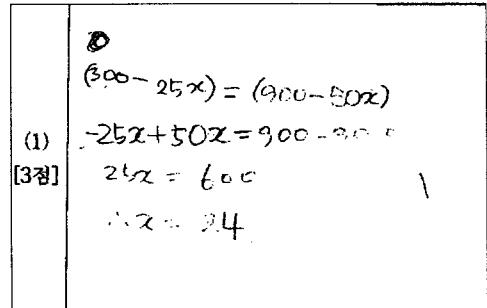 (300-25x) = (900-50x)
(1) -25x+50x = 900-300
[3점] 25x = 600
∴ x = 24